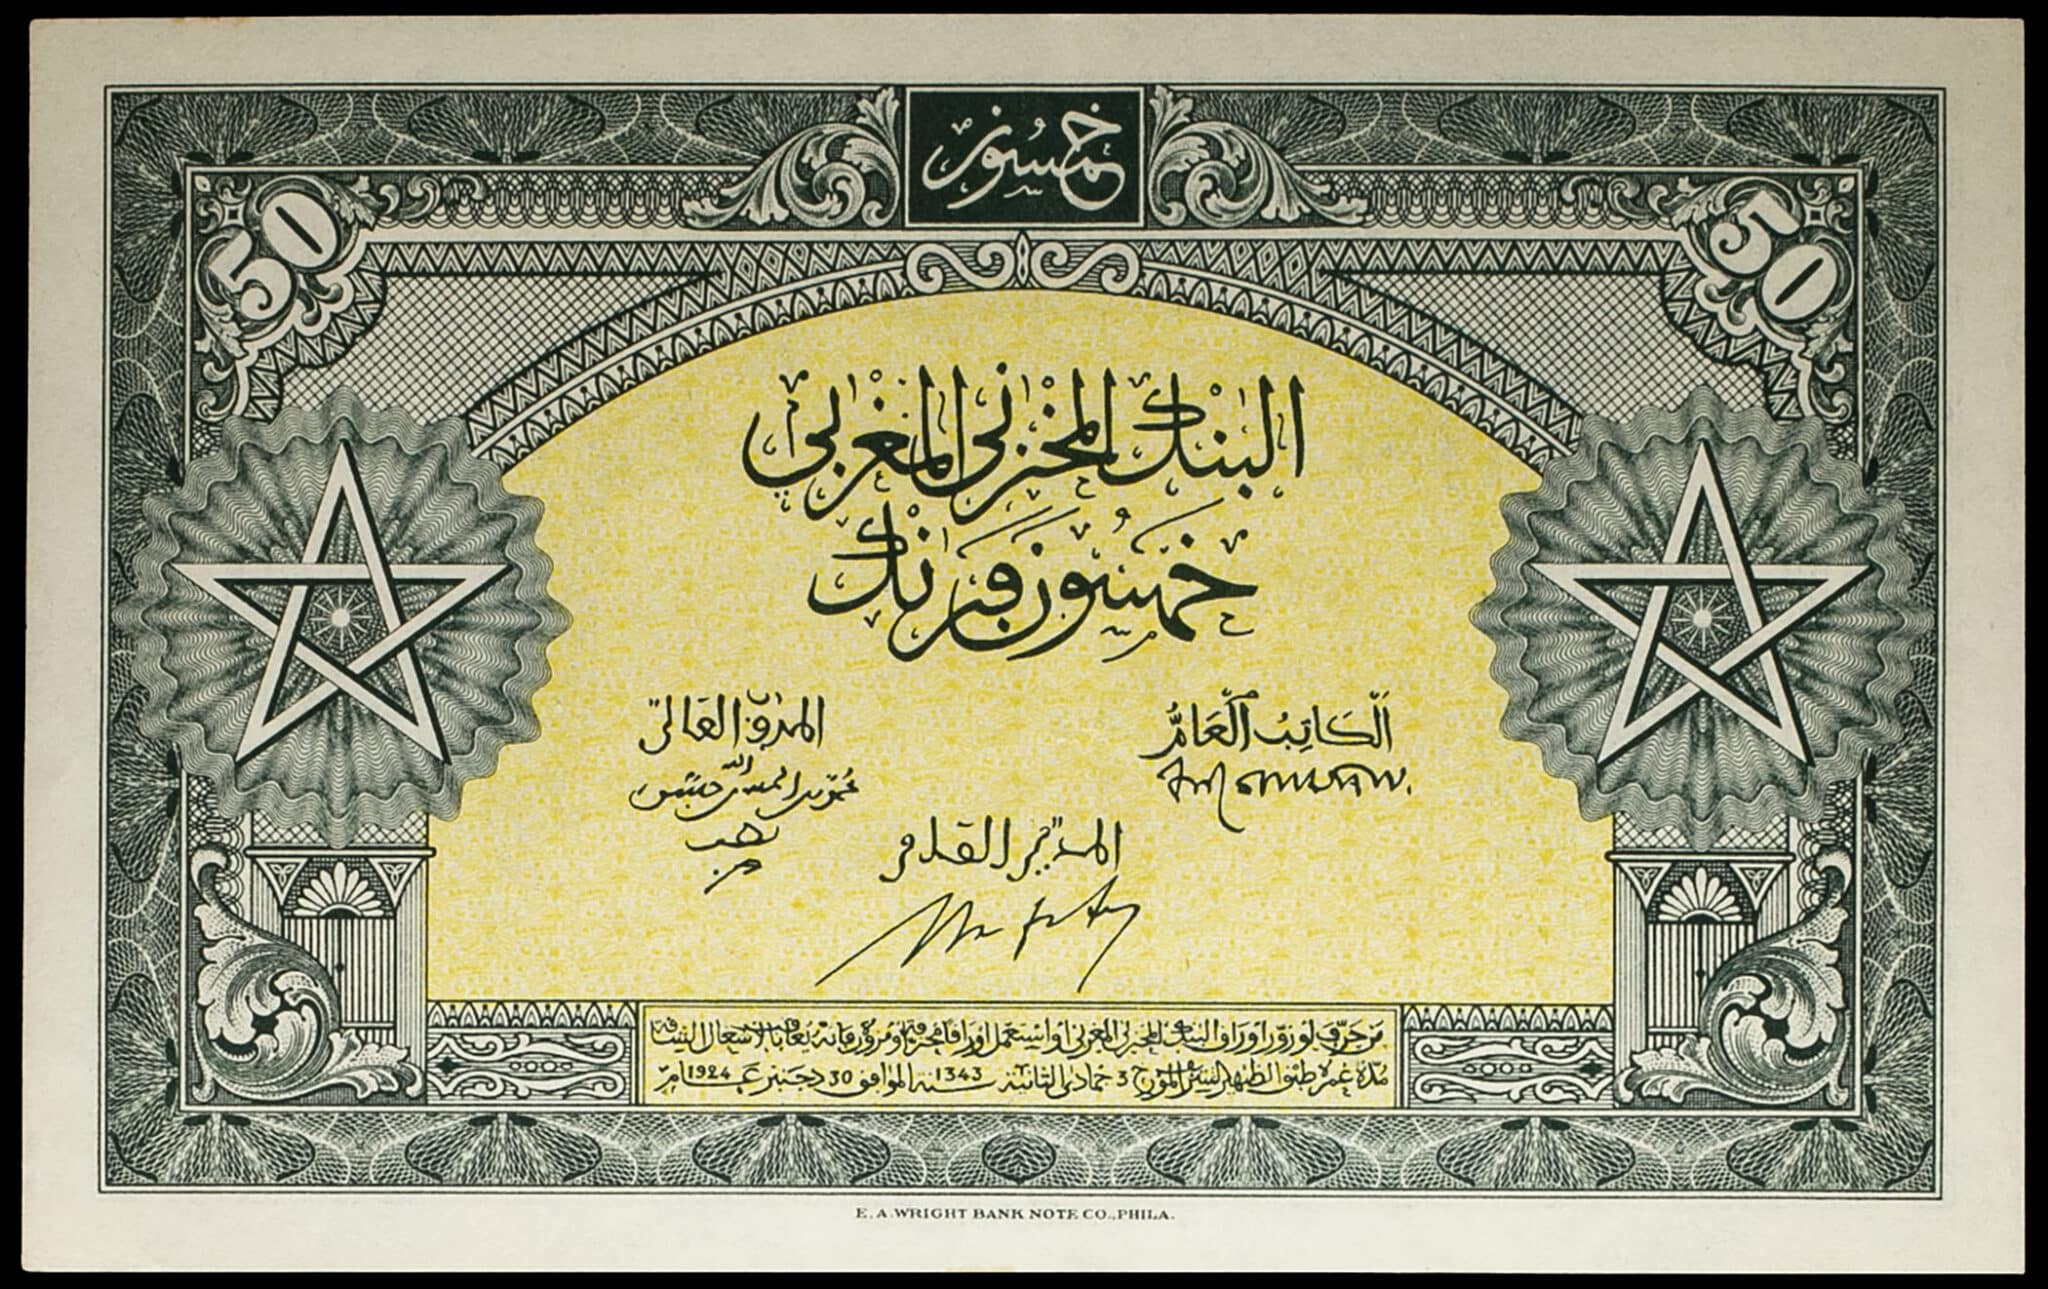 خمسون
50
50
البنك المخزني المغربي
خمسون فرنك
الكَاتِبُ العَامُّ
المندوب العالي
المدير القادم
من حرّف او زوّر اوراق البنك المخزني المغربي او استعمل اوراقا محرفة او مزورة فانه يعاقب بالاشغال الشاقة
مدة عمره طبق الظهير الشريف المؤرخ 3 جمادى الثانية سنة 1343 الموافق 30 دجنبر عام 1924
E. A. WRIGHT BANK NOTE CO., PHILA.